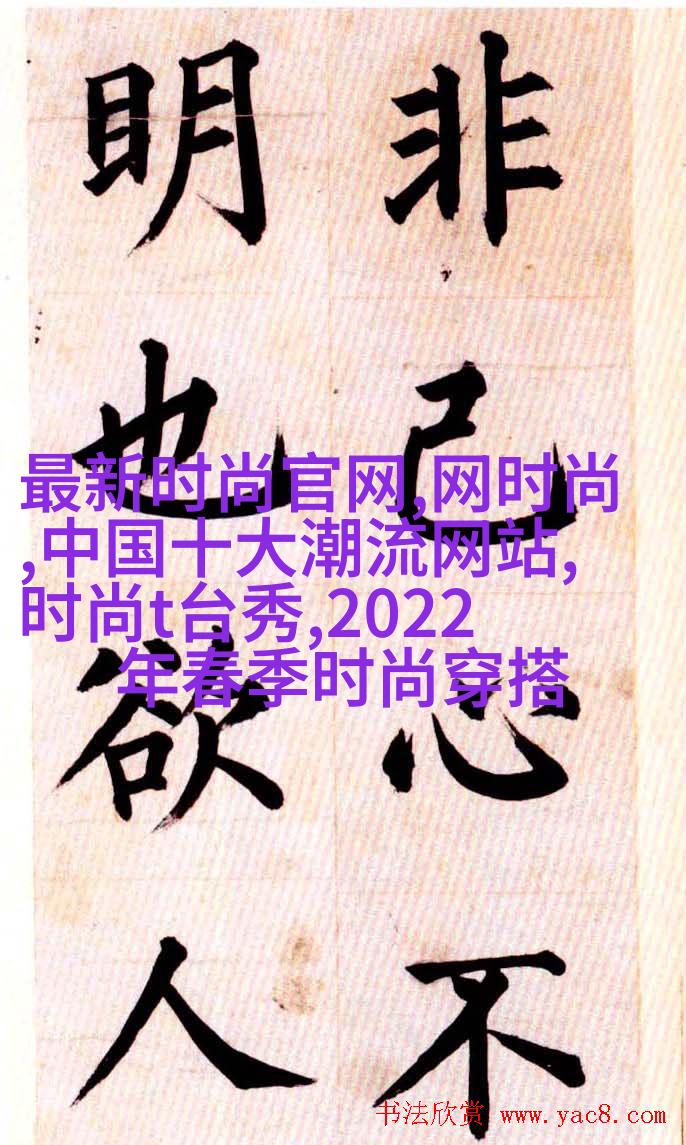 非己心不
明也欲人
最新时尚官网,网时尚
,中国十大潮流网站,
时尚t台秀,2022
年春季时尚穿搭
书法欣赏 www.yac8.com